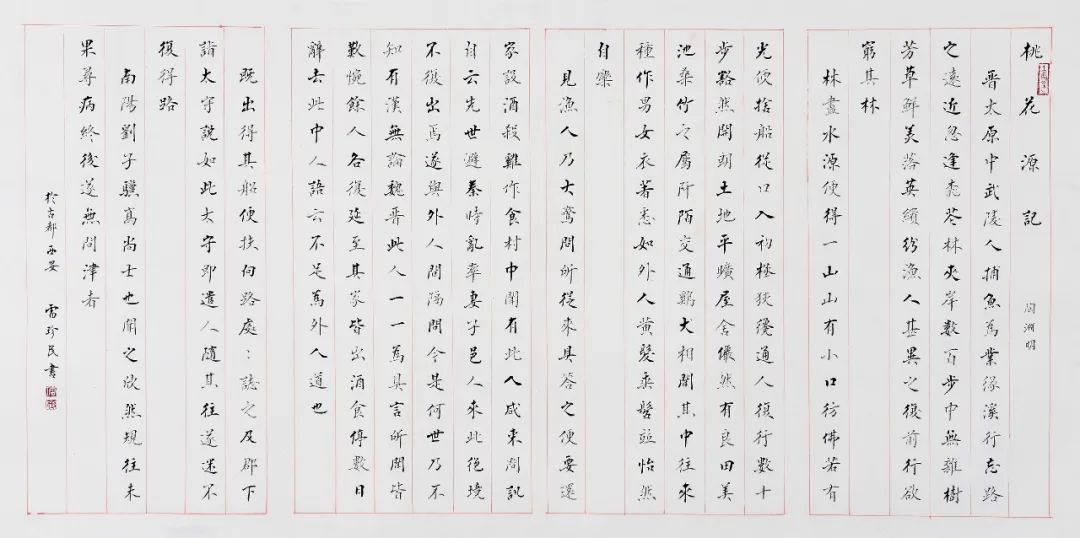 桃花源記　陶淵明
晉太原中武陵人捕魚為業緣溪行忘路
之遠近忽逢桃花林夾岸數百步中無雜樹
芳草鮮美落英繽紛漁人甚異之復前行欲
窮其林
林盡水源便得一山山有小口彷佛若有
光便捨船從口入初極狹纔通人復行數十
步豁然開朗土地平曠屋舍儼然有良田美
池桑竹之屬阡陌交通鷄犬相聞其中往來
種作男女衣著悉如外人黃髮垂髫並怡然
自樂
見漁人乃大驚問所從來具答之便要還
家設酒殺雞作食村中聞有此人咸來問訊
自云先世避秦時亂率妻子邑人來此絕境
不復出焉遂與外人間隔問今是何世乃不
知有漢無論魏晉此人一一為具言所聞皆
歎惋餘人各復延至其家皆出酒食停數日
辭去此中人語云不足為外人道也
既出得其船便扶向路處：誌之及郡下
詣太守說如此太守即遣人隨其往遂迷不
復得路
南陽劉子驥高尚士也聞之欣然規往未
果尋病終後遂無問津者
於古都西安　雷珍民書